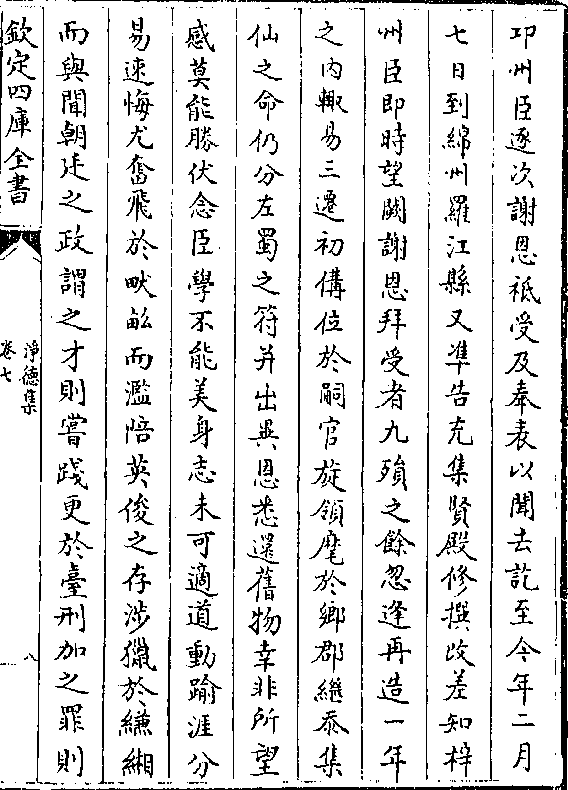 卭州臣逐次謝恩祗受及奉表以聞去訖至今年二月
七日到綿州羅江縣又凖告充集賢殿修撰改差知梓
州臣即時望闕謝恩拜受者九殞之餘忽逢再造一年
之内輙易三遷初備位於嗣官旋領麾於鄉郡繼忝集
仙之命仍分左蜀之符并出異恩悉還舊物幸非所望
感莫能勝伏念臣學不能美身志未可適道動踰涯分
易速悔尤奮飛於畎畝而濫陪英俊之存涉獵於縑緗
而與聞朝廷之政謂之才則嘗踐更於臺刑加之罪則
欽定四庫全書
淨德集
卷七
八